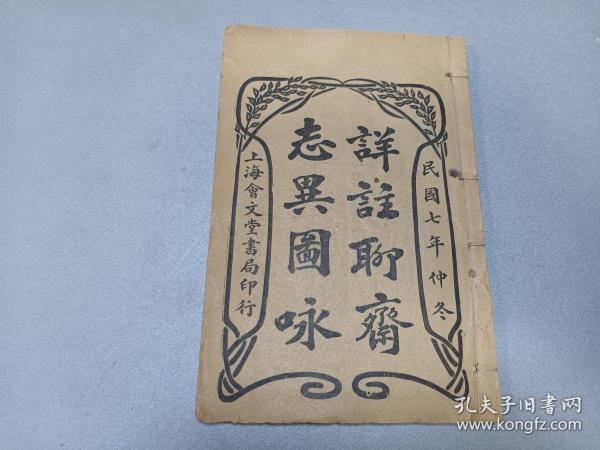 民國七年仲冬
詳註聊齋
志異圖咏
上海會文堂書局印行
孔夫子旧書网
www.kongfz.com